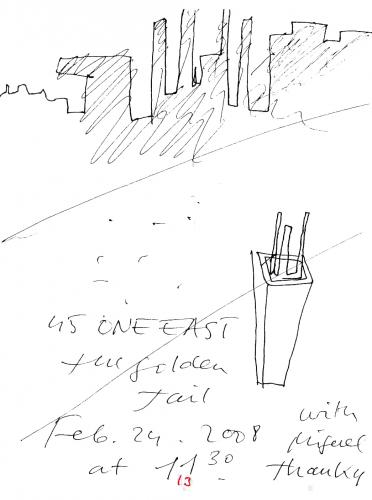 45 ONE EAST
the golden
Jail
Feb. 24. 2008
at 11 30
with
Miguel
thanky
13